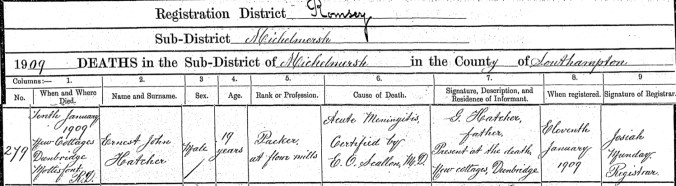 Registration District Romsey
Sub-District Michelmersh
1909 DEATHS in the Sub-District of Michelmersh in the County of Southampton
Columns:— 1. 2. 3 4 5. 6. 7. 8. 9
No. When and Where Died. Name and Surname. Sex. Age. Rank or Profession. Cause of Death. Signature, Description, and Residence of Informant. When registered. Signature of Registrar.
279
Tenth January
1909
New Cottages
Dunbridge
Mottisfont
R.D.
Ernest John
Hatcher
Male
19
years
Packer
at flour mills
Acute Meningitis,
Certified by
E. O. Scallon, M.D.
G. Hatcher,
father,
Present at the death,
New cottages, Dunbridge
Eleventh
January
1909
Josiah
Munday
Registrar.